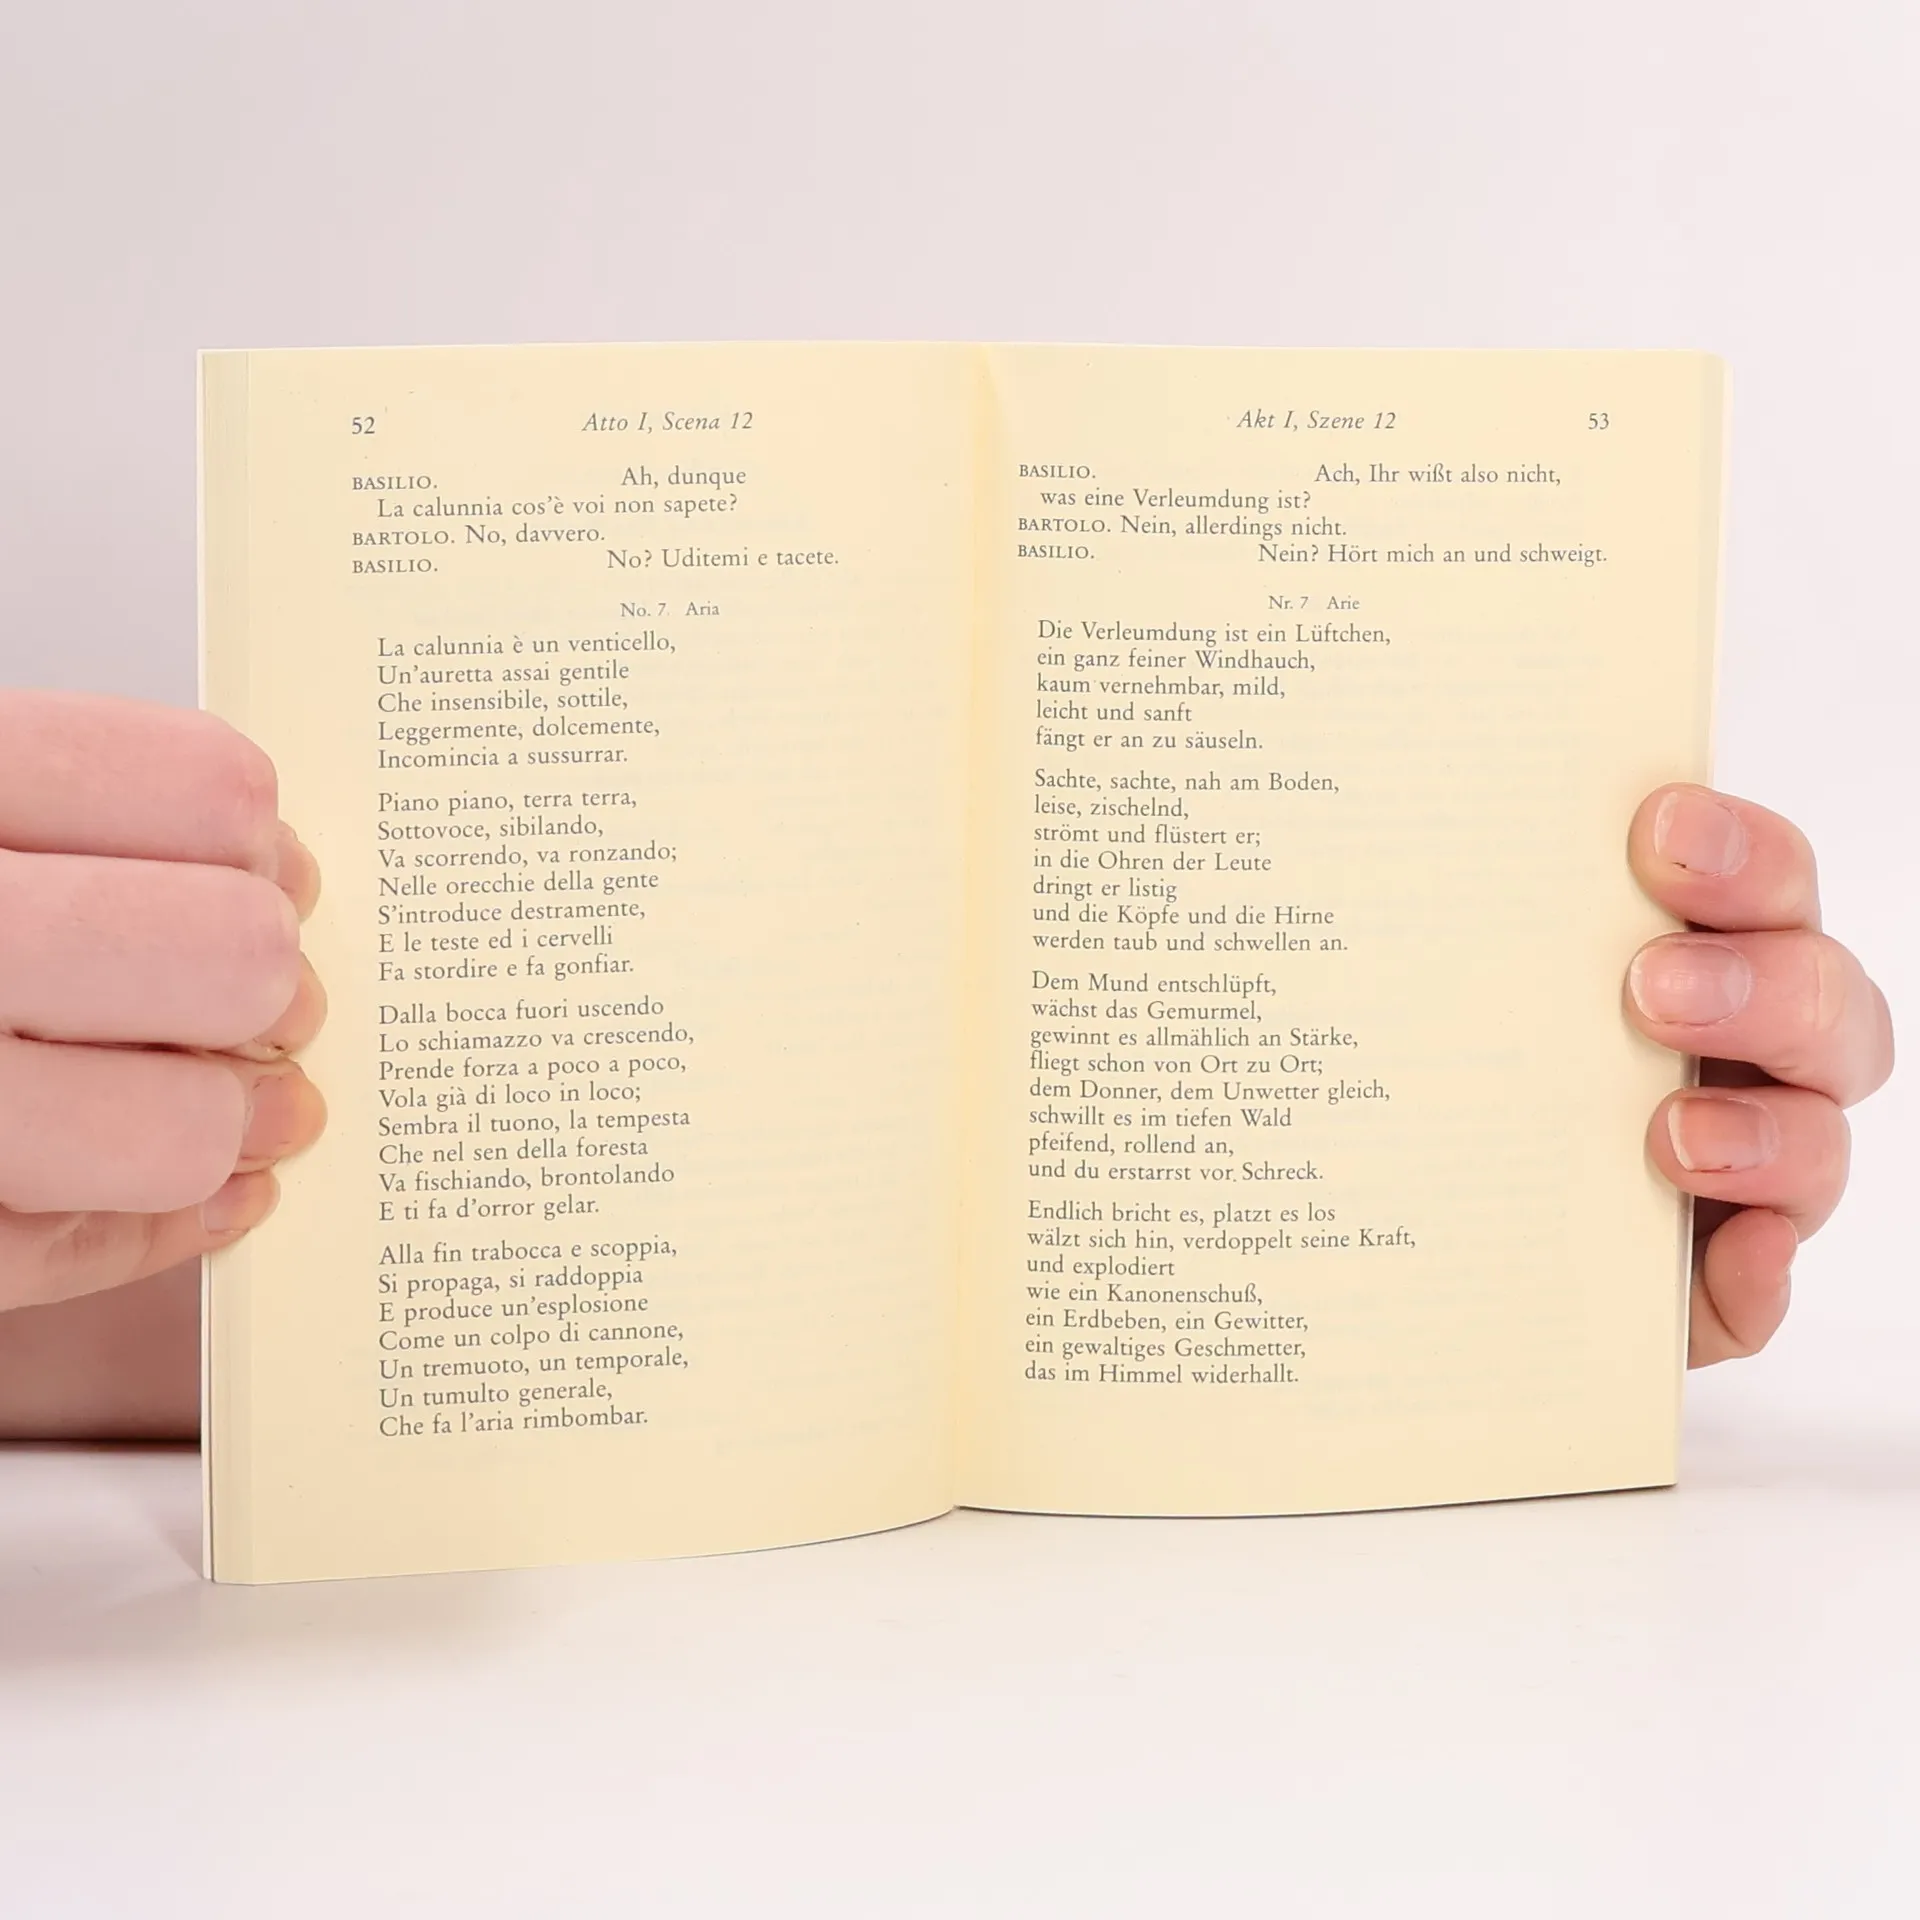 52 Atto I, Scena 12
BASILIO. Ah, dunque
La calunnia cos'è voi non sapete?
BARTOLO. No, davvero.
BASILIO. No? Uditemi e tacete.
No. 7. Aria
La calunnia è un venticello,
Un'auretta assai gentile
Che insensibile, sottile,
Leggermente, dolcemente,
Incomincia a sussurrar.
Piano piano, terra terra,
Sottovoce, sibilando,
Va scorrendo, va ronzando;
Nelle orecchie della gente
S'introduce destramente,
E le teste ed i cervelli
Fa stordire e fa gonfiar.
Dalla bocca fuori uscendo
Lo schiamazzo va crescendo,
Prende forza a poco a poco,
Vola già di loco in loco;
Sembra il tuono, la tempesta
Che nel sen della foresta
Va fischiando, brontolando
E ti fa d'orror gelar.
Alla fin trabocca e scoppia,
Si propaga, si raddoppia
E produce un'esplosione
Come un colpo di cannone,
Un tremuoto, un temporale,
Un tumulto generale,
Che fa l'aria rimbombar.
Akt I, Szene 12 53
BASILIO. Ach, Ihr wißt also nicht,
was eine Verleumdung ist?
BARTOLO. Nein, allerdings nicht.
BASILIO. Nein? Hört mich an und schweigt.
Nr. 7 Arie
Die Verleumdung ist ein Lüftchen,
ein ganz feiner Windhauch,
kaum vernehmbar, mild,
leicht und sanft
fängt er an zu säuseln.
Sachte, sachte, nah am Boden,
leise, zischelnd,
strömt und flüstert er;
in die Ohren der Leute
dringt er listig
und die Köpfe und die Hirne
werden taub und schwellen an.
Dem Mund entschlüpft,
wächst das Gemurmel,
gewinnt es allmählich an Stärke,
fliegt schon von Ort zu Ort;
dem Donner, dem Unwetter gleich,
schwillt es im tiefen Wald
pfeifend, rollend an,
und du erstarrst vor Schreck.
Endlich bricht es, platzt es los
wälzt sich hin, verdoppelt seine Kraft,
und explodiert
wie ein Kanonenschuß,
ein Erdbeben, ein Gewitter,
ein gewaltiges Geschmetter,
das im Himmel widerhallt.